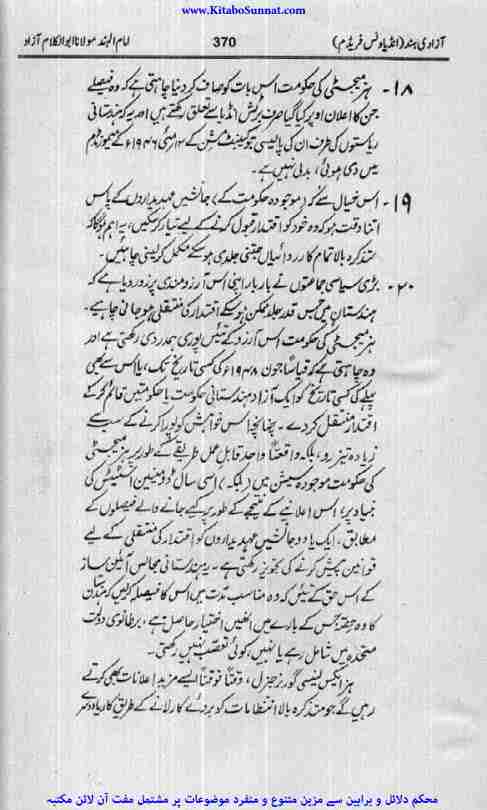 www.KitaboSunnat.com
آزادی ہند (انڈیا ونس فریڈم) 370 امام الہند مولانا ابوالکلام آزاد
۱۸- ہز میجسٹی کی حکومت اس بات کو صاف کر دینا چاہتی ہے کہ وہ فیصلے
جن کا اعلان اوپر کیا گیا صرف برٹش انڈیا سے تعلق رکھتے ہیں اور یہ کہ ہندستانی
ریاستوں کی طرف ان کی پالیسی جو کیبنٹ مشن کے ۱۲ مئی ۱۹۴۶ء کے میمورنڈم
میں دی ہوئی، بدلی نہیں ہے۔
۱۹- اس خیال سے کہ (موجودہ حکومت کے) جانشیں عہدیداروں کے پاس
اتنا وقت ہو کہ وہ خود کو اقتدار قبول کرنے کے لیے تیار کر سکیں، یہ اہم ہوگا کہ
متذکرہ بالا تمام کارروائیاں جتنی جلدی ہو سکے مکمل کر لینی چاہئیں۔
۲۰- بڑی سیاسی جماعتوں نے بار بار اپنی اس آرزومندی پر زور دیا ہے کہ
ہندستان میں جس قدر جلد ممکن ہو سکے اقتدار کی منتقلی ہو جانی چاہیے۔
ہز میجسٹی کی حکومت اس آرزو کے تئیں پوری ہمدردی رکھتی ہے اور
وہ چاہتی ہے کہ قیاساً جون ۱۹۴۸ء کی کسی تاریخ تک، یا اس سے بھی
پہلے کی کسی تاریخ کو ایک آزاد ہندستانی حکومت یا حکومتیں قائم کر کے
اقتدار منتقل کر دے۔ چنانچہ اس خواہش کو پورا کرنے کے سب سے
زیادہ تیز رو، بلکہ واقعتاً واحد قابل عمل طریقے کے طور پر ہز میجسٹی
کی حکومت موجودہ سیشن میں (بلکہ) اسی سال ڈومینین اسٹیٹس کی
بنیاد پر، اس اعلانیے کے نتیجے کے طور پر کیے جانے والے فیصلوں کے
مطابق، ایک یا دو جانشیں عہدیداروں کو اقتدار کی منتقلی کے لیے
قوانین پیش کرنے کی تجویز رکھتی ہے۔ یہ ہندستانی مجالس آئین ساز
کے اس حق کے تئیں کہ وہ مناسب مدت میں اس کا فیصلہ کر لیں کہ ہندستان
کا وہ حصہ جس کے بارے میں انھیں اختیار حاصل ہے، برطانوی دولت
متحدہ میں شامل رہے یا نہیں، کوئی تعصب نہیں رکھتی۔
ہز ایکس لینسی گورنر جنرل، وقتاً فوقتاً ایسے مزید اعلانات بھی کرتے
رہیں گے جو متذکرہ بالا انتظامات کو بروئے کار لانے کے طریق کار یا دوسرے
محکم دلائل و براہین سے مزین متنوع و منفرد موضوعات پر مشتمل مفت آن لائن مکتبہ